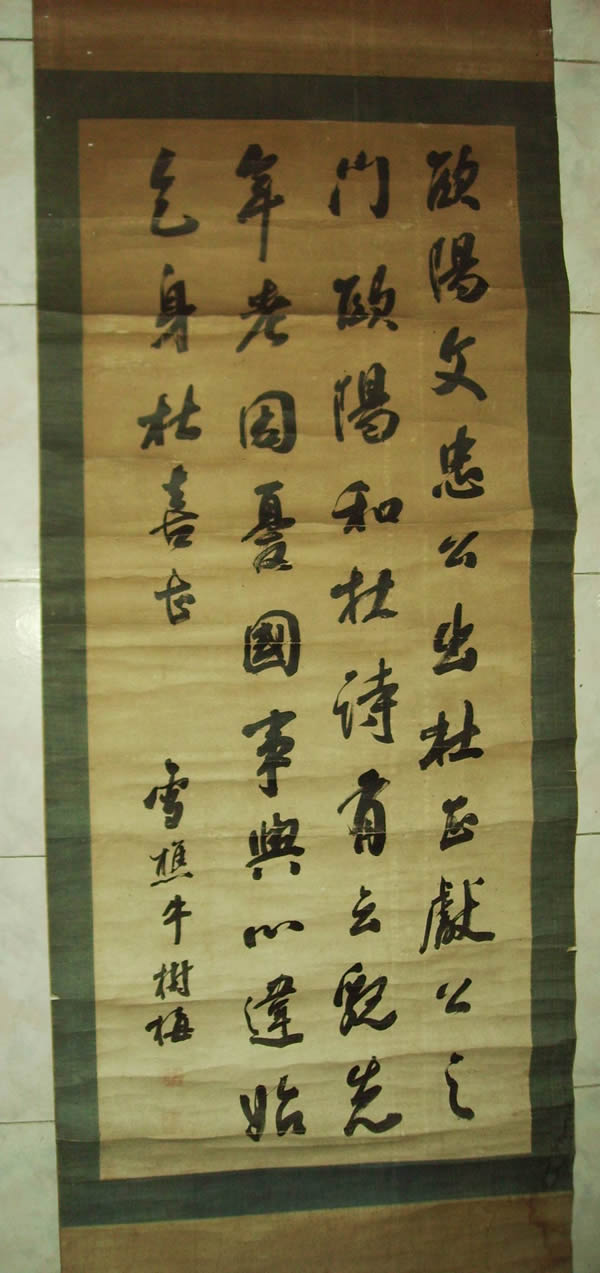 歐陽文忠公出杜正獻公之
門歐陽和杜詩有云貌先
年老因憂國事與心違始
乞身杜喜甚
雪樵牛樹梅